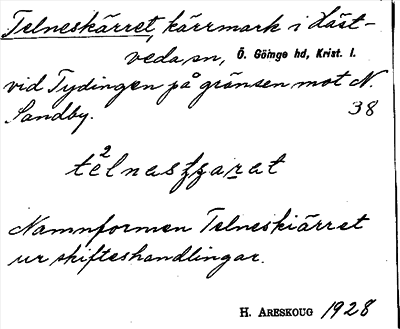 Telneskärret, kärrmark i Häst-
veda sn, Ö. Göinge hd, Krist. l.
vid Tydingen på gränsen mot N.
Sandby. 38
Namnformen Telneskiärret
ur skifteshandlingar.
H. ARESKOUG 1928